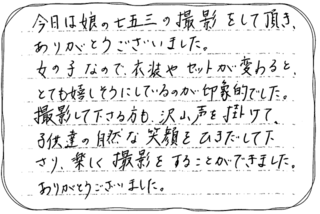 今日は娘の七五三の撮影をして頂き、
ありがとうございました。
女の子なので、衣装やセットが変わると、
とても嬉しそうにしているのが印象的でした。
撮影して下さる方も、沢山声を掛けて、
子供達の自然な笑顔をひきだして下
さり、楽しく撮影をすることができました。
ありがとうございました。